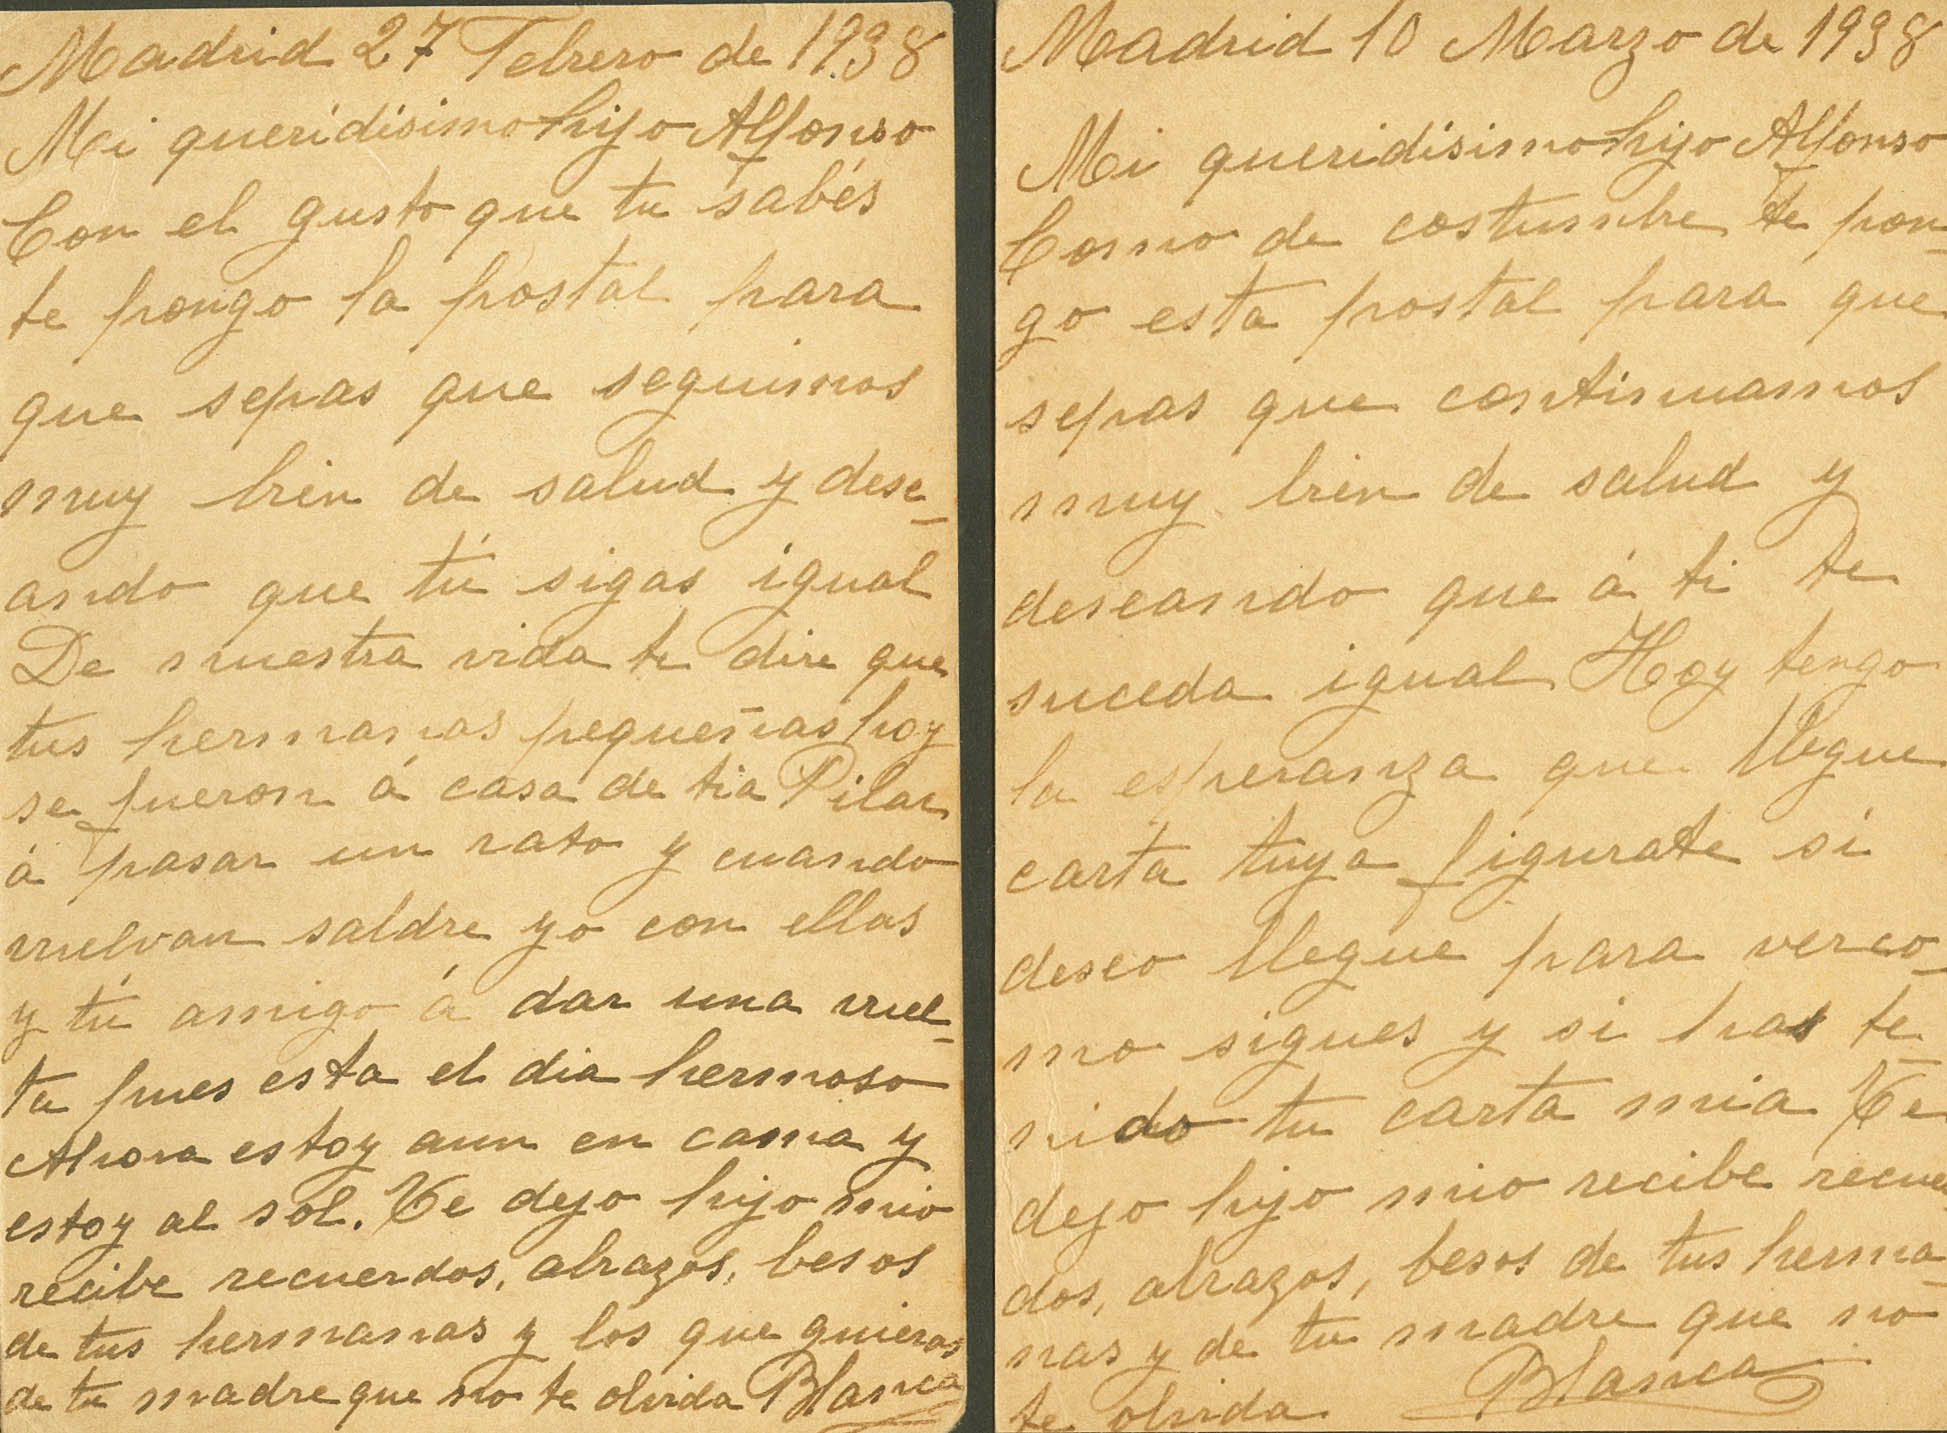 Madrid 27 Febrero de 1938
Mi queridísimo hijo Alfonso
Con el gusto que tu sabés
te pongo la postal para
que sepas que seguimos
muy bien de salud y dese-
ando que tú sigas igual
De nuestra vida te dire que
tus hermanas pequeñas hoy
se fueron á casa de tia Pilar
á pasar un rato y cuando
vuelvan saldre yo con ellas
y tú amigo á dar una vuel-
ta pues esta el dia hermoso
Ahora estoy aun en cama y
estoy al sol. Te dejo hijo mio
recibe recuerdos, abrazos, besos
de tus hermanas y los que quieras
de tu madre que no te olvida Blanca
Madrid 10 Marzo de 1938
Mi queridísimo hijo Alfonso
Como de costumbre te pon-
go esta postal para que
sepas que continuamos
muy bien de salud y
deseando que á ti te
suceda igual Hoy tengo
la esperanza que llegue
carta tuya figurate si
deseo llegue para ver co-
mo sigues y si has te-
nido tu carta mia Te
dejo hijo mio recibe recuer
dos, abrazos, besos de tus herma-
nas y de tu madre que no
te olvida Blanca